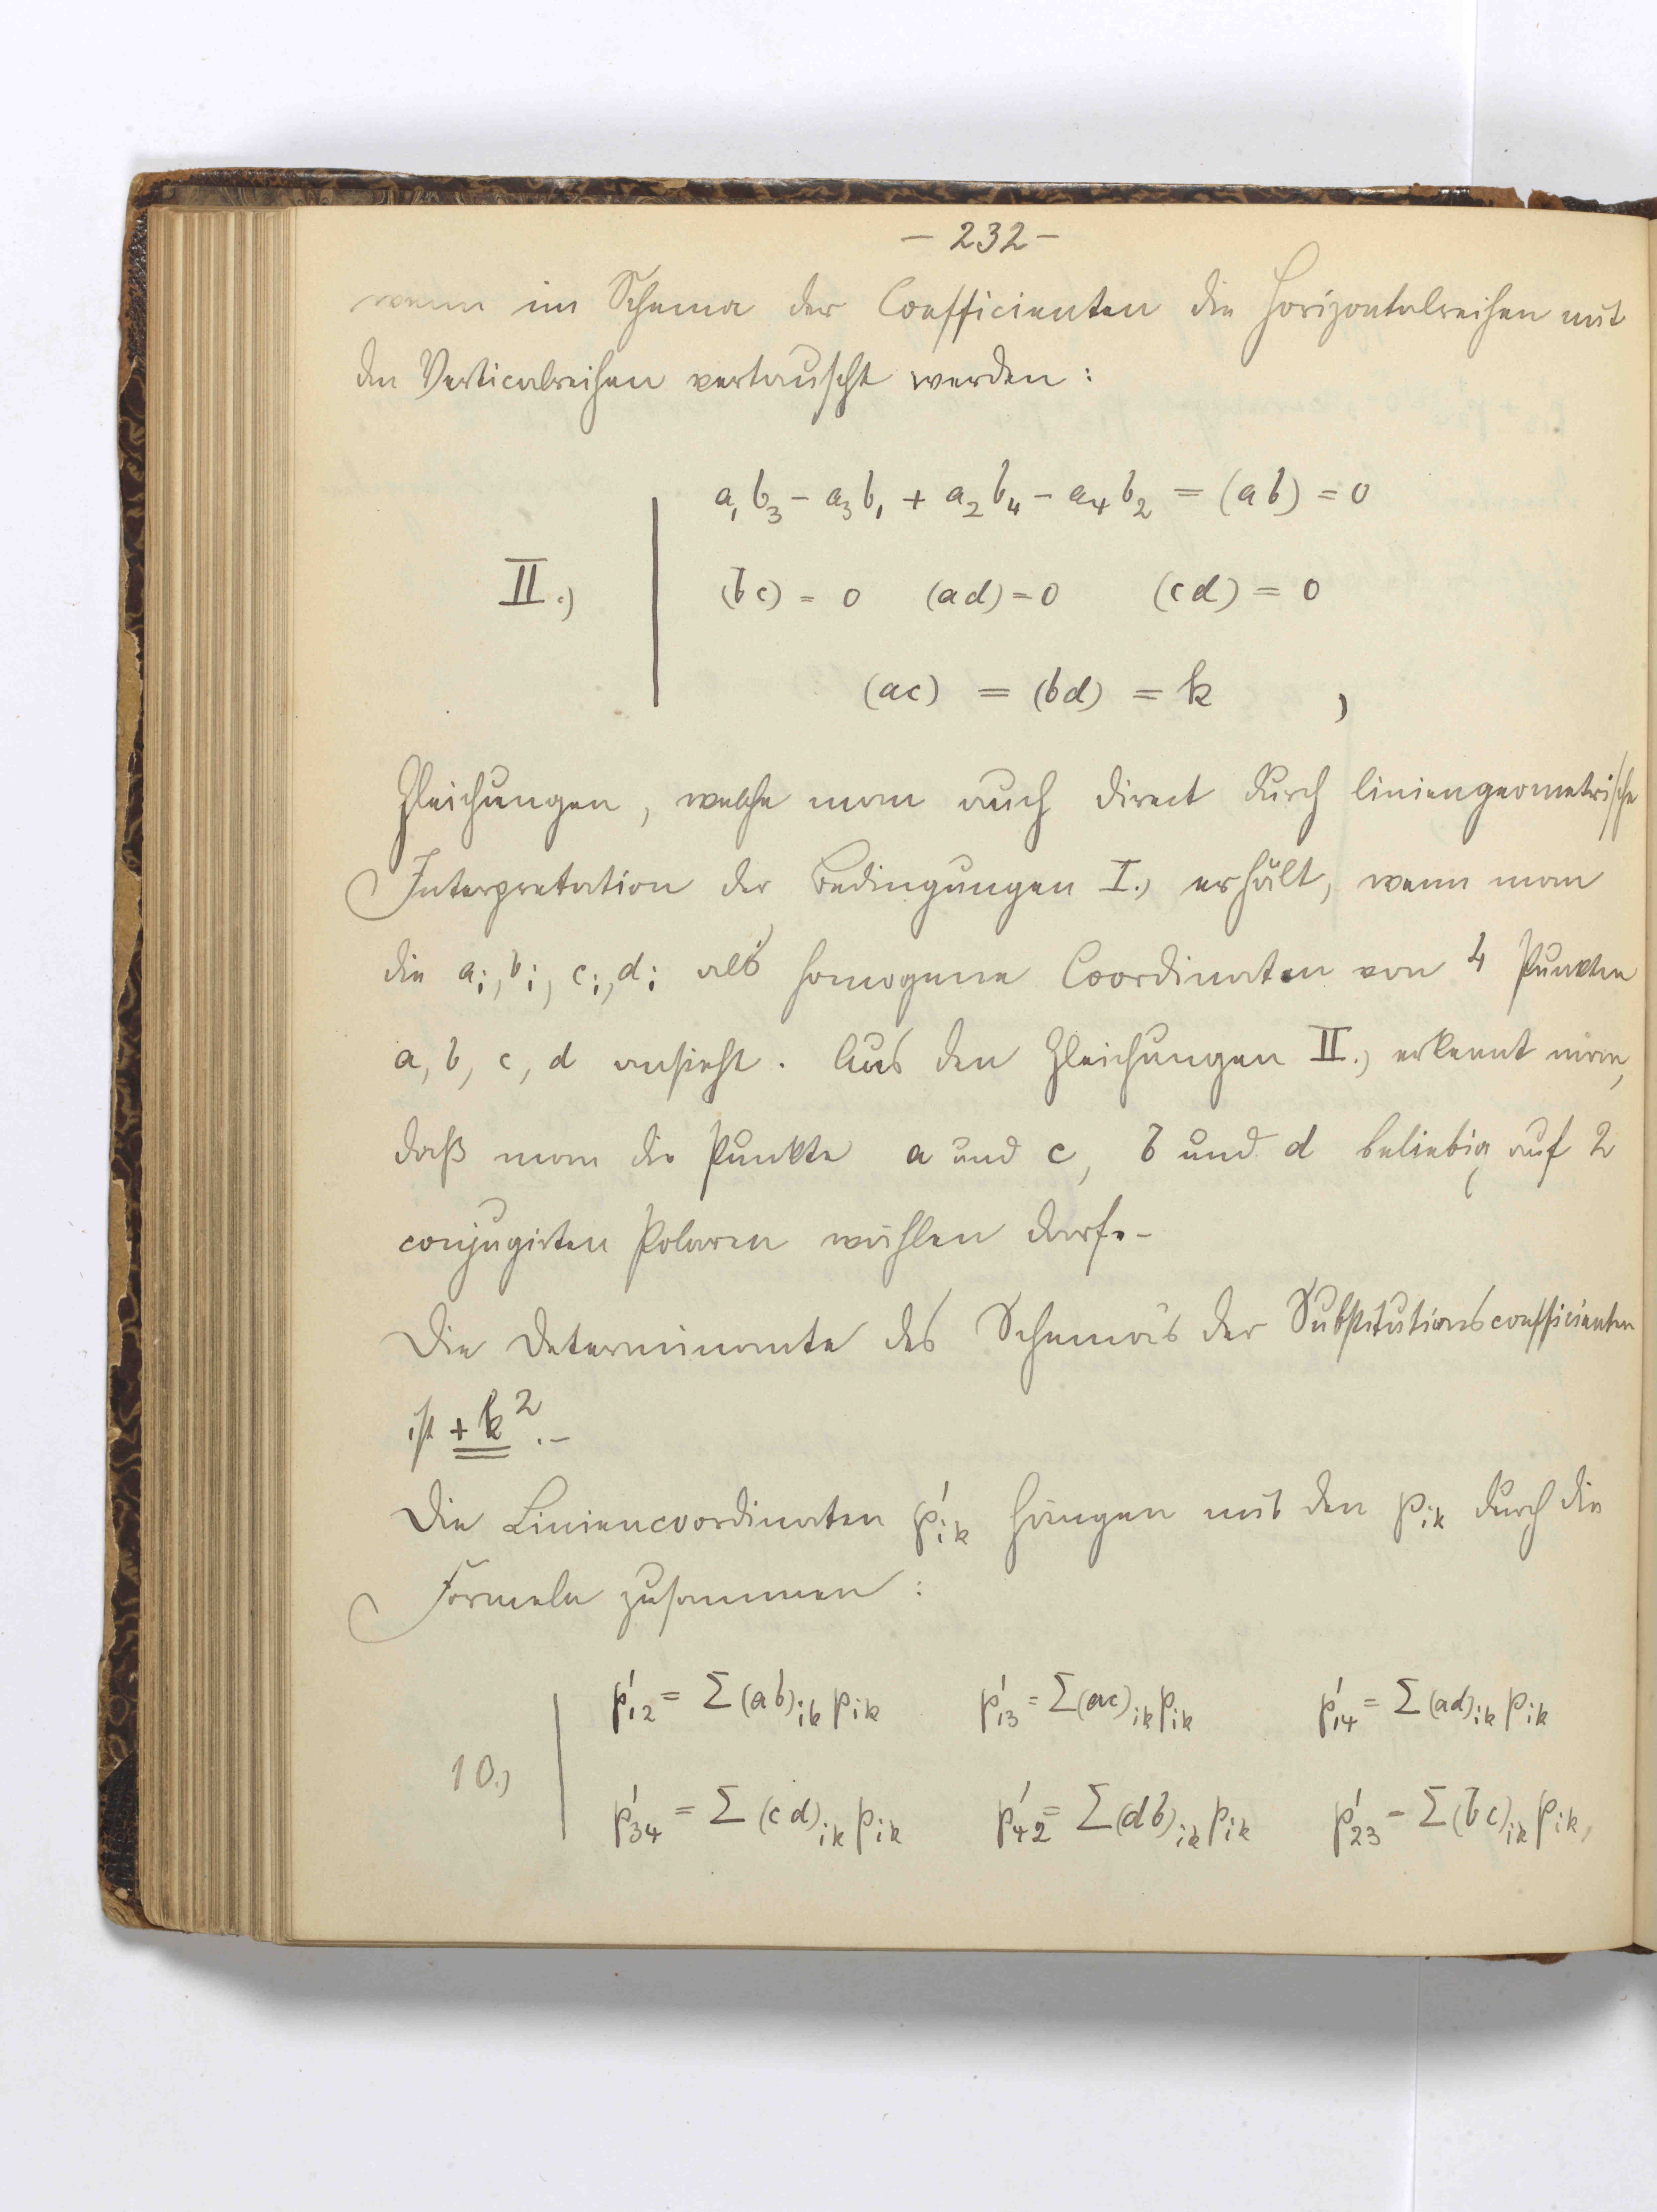 – 232 –
wenn im Schema der Coefficienten die Horizontalreihen mit
den Verticalreihen vertauscht werden:
a₁b₃ − a₃b₁ + a₂b₄ − a₄b₂ = (ab) = 0
II.) (bc) = 0 (ad) = 0 (cd) = 0
(ac) = (bd) = k ,
Gleichungen, welche man auch direct durch liniengeometrische
Interpretation der Bedingungen I.) erhält, wenn man
die aᵢ, bᵢ, cᵢ, dᵢ als homogene Coordinaten von 4 Punkten
a, b, c, d ansieht. Aus den Gleichungen II.) erkennt man,
daß man die Punkte a und c, b und d beliebig auf 2
conjugirten Polaren wählen darf. –
Die Determinante des Schemas der Substitutionscoefficienten
ist + k². –
Die Liniencoordinaten p'ᵢₖ hängen mit den pᵢₖ durch die
Formeln zusammen:
p'₁₂ = Σ(ab)ᵢₖ pᵢₖ p'₁₃ = Σ(ac)ᵢₖ pᵢₖ p'₁₄ = Σ(ad)ᵢₖ pᵢₖ
10.)
p'₃₄ = Σ(cd)ᵢₖ pᵢₖ p'₄₂ = Σ(db)ᵢₖ pᵢₖ p'₂₃ = Σ(bc)ᵢₖ pᵢₖ,